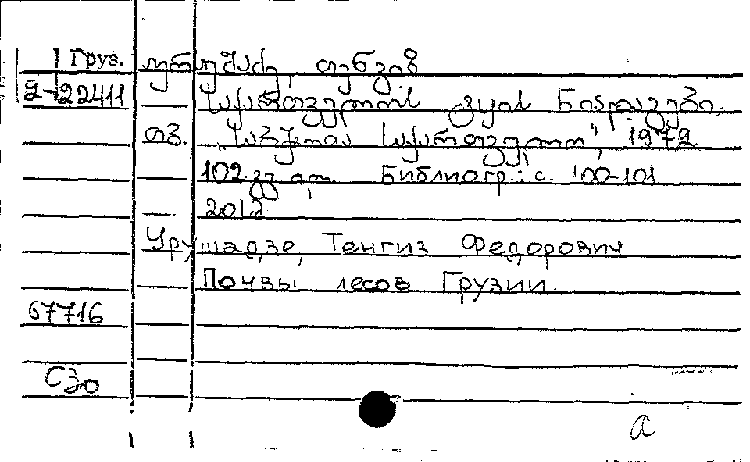 Груз. ურუშაძე, თენგიზ
2-22411 საქართველოს ტყის ნიადაგები.
თბ. "საბჭოთა საქართველო", 1972
102 გვ. Библиогр.: с. 100-101
Урушадзе, Тенгиз Федорович
Почвы лесов Грузии.
67716
С30
a